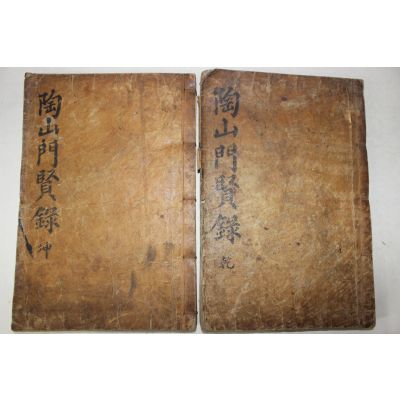 陶山門賢錄
乾
陶山門賢錄
坤